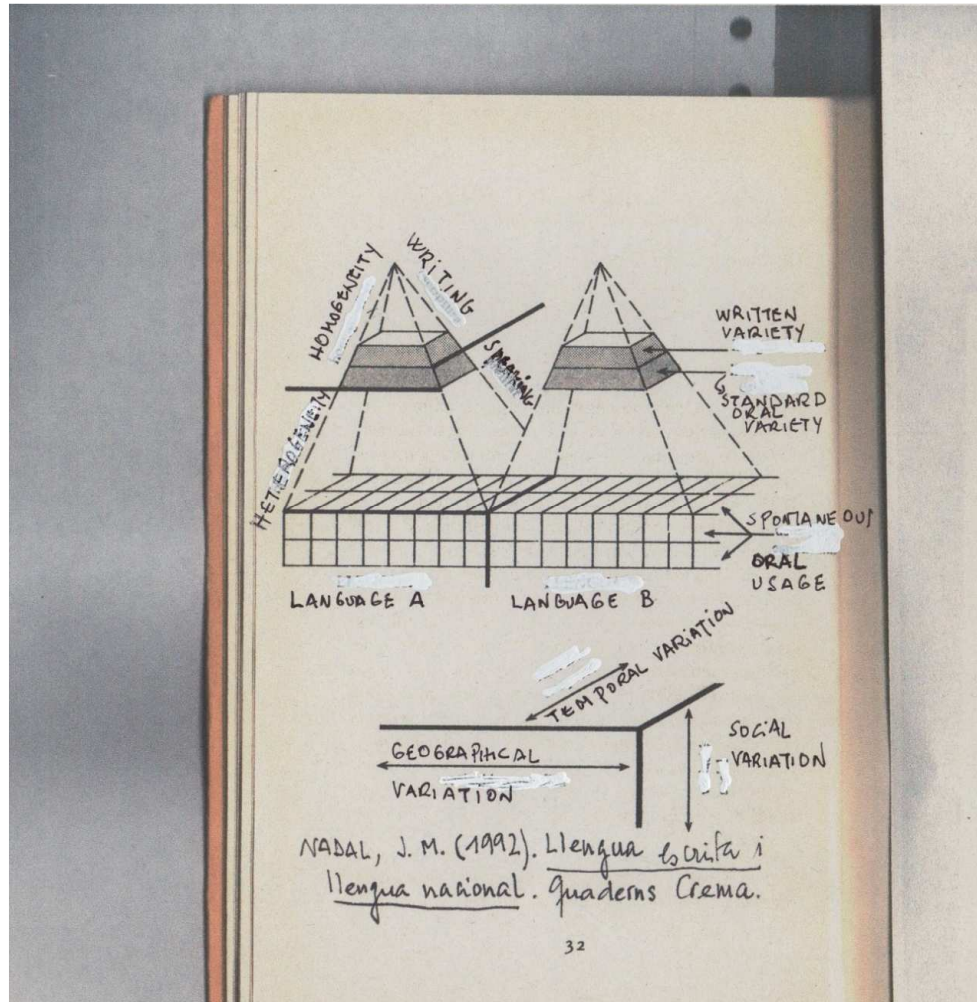 HOMOGENEITY
WRITING
SPEAKING
HETEROGENEITY
WRITTEN
VARIETY
STANDARD
ORAL
VARIETY
SPONTANEOUS
ORAL
USAGE
LANGUAGE A
LANGUAGE B
TEMPORAL VARIATION
GEOGRAPHICAL
VARIATION
SOCIAL
VARIATION
NADAL, J. M. (1992). Llengua escrita i
llengua nacional. Quaderns Crema.
32